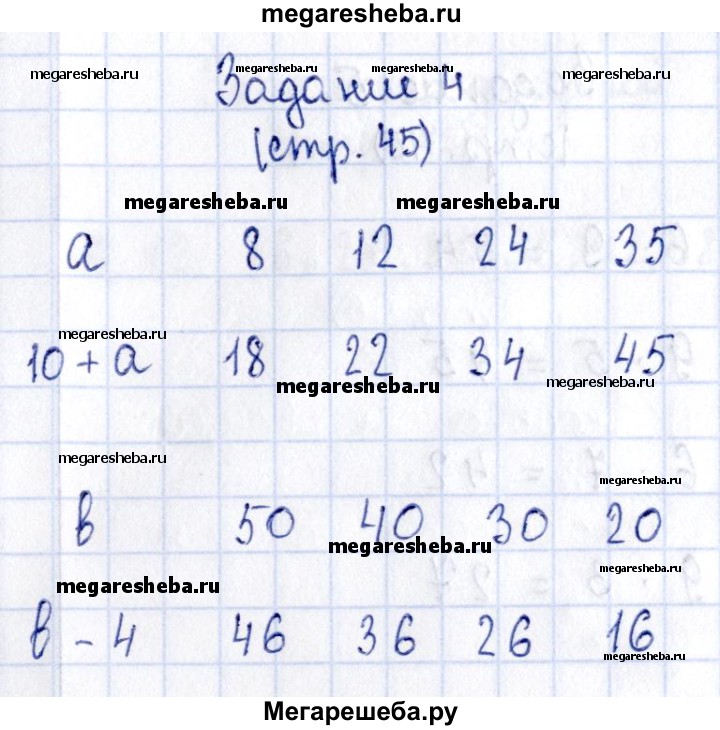 megaresheba.ru
megaresheba.ru megaresheba.ru megaresheba.ru megaresheba.ru
Задание 4
(стр. 45)
megaresheba.ru megaresheba.ru
а 8 12 24 35
megaresheba.ru
10 + а 18 22 34 45
megaresheba.ru megaresheba.ru
megaresheba.ru megaresheba.ru
в 50 40 30 20
megaresheba.ru
megaresheba.ru megaresheba.ru
в - 4 46 36 26 16
megaresheba.ru
Мегарешеба.ру